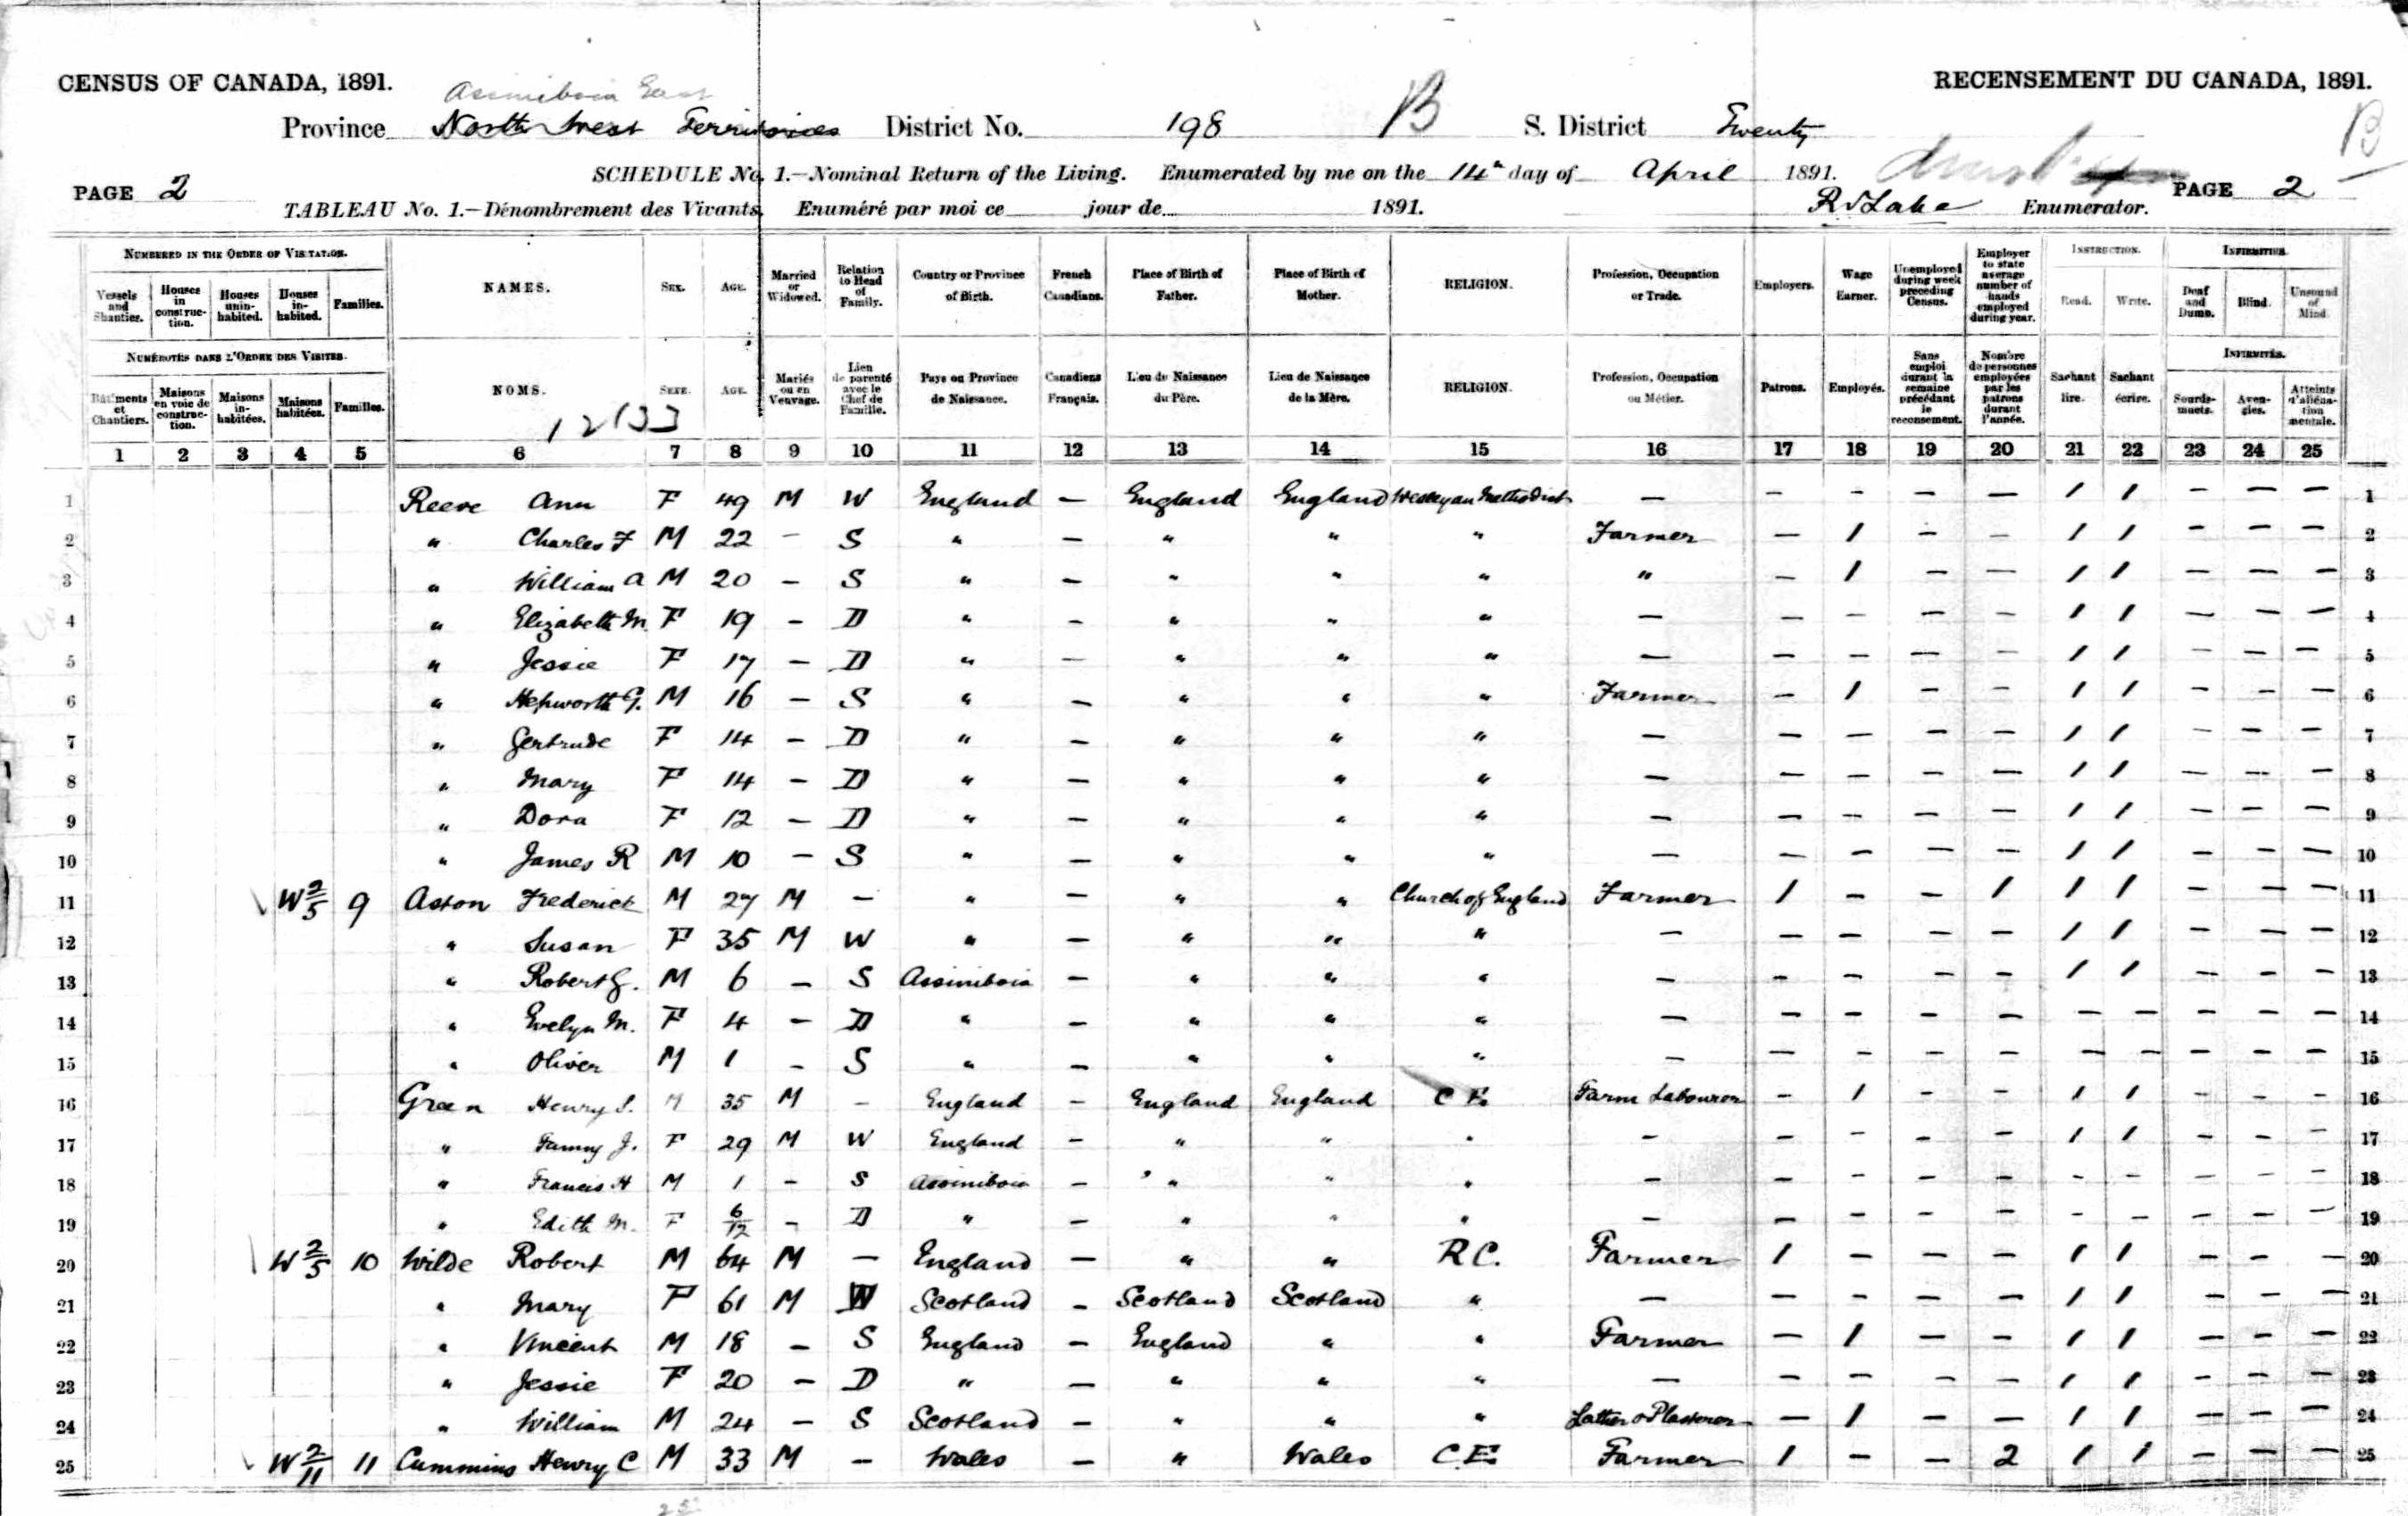 CENSUS OF CANADA, 1891. Assiniboia East RECENSEMENT DU CANADA, 1891.
Province North West Territories District No. 198 B S. District Twenty B
SCHEDULE No. 1.—Nominal Return of the Living. Enumerated by me on the 14th day of April 1891.
PAGE 2 PAGE 2
TABLEAU No. 1.—Dénombrement des Vivants. Enuméré par moi ce jour de 1891. Enumerator.
NUMBERED IN THE ORDER OF VISITATION. NAMES. SEX. AGE. Married or Widowed. Relation to Head of Family. Country or Province of Birth. French Canadians. Place of Birth of Father. Place of Birth of Mother. RELIGION. Profession, Occupation or Trade. Employers. Wage Earner. Unemployed during week preceding Census. Employer to state average number of hands employed during year. INSTRUCTION. INFIRMITIES.
Vessels and Shanties. Houses in construction. Houses uninhabited. Houses inhabited. Families. Read. Write. Deaf and Dumb. Blind. Unsound of Mind.
NUMÉROTÉS DANS L'ORDRE DES VISITES. NOMS. SEXE. AGE. Mariés ou en Veuvage. Lien de parenté avec le Chef de Famille. Pays ou Province de Naissance. Canadiens Français. Lieu de Naissance du Père. Lieu de Naissance de la Mère. RELIGION. Profession, Occupation ou Métier. Patrons. Employés. Sans emploi durant la semaine précédant le recensement. Nombre de personnes employées par les patrons durant l'année. Sachant lire. Sachant écrire. INFIRMITÉS.
Bâtiments et Chantiers. Maisons en voie de construction. Maisons inhabitées. Maisons habitées. Familles. Sourds-muets. Aveugles. Atteints d'aliénation mentale.
1 2 3 4 5 6 7 8 9 10 11 12 13 14 15 16 17 18 19 20 21 22 23 24 25
1 Reeve Ann F 49 M W England — England England Wesleyan Methodist — — — — — 1 1 — — — 1
2 " Charles F M 22 — S " — " " " Farmer — 1 — — 1 1 — — — 2
3 " William A M 20 — S " — " " " " — 1 — — 1 1 — — — 3
4 " Elizabeth M. F 19 — D " — " " " — — — — — 1 1 — — — 4
5 " Jessie F 17 — D " — " " " — — — — — 1 1 — — — 5
6 " Hepworth G. M 16 — S " — " " " Farmer — 1 — — 1 1 — — — 6
7 " Gertrude F 14 — D " — " " " — — — — — 1 1 — — — 7
8 " Mary F 14 — D " — " " " — — — — — 1 1 — — — 8
9 " Dora F 12 — D " — " " " — — — — — 1 1 — — — 9
10 " James R M 10 — S " — " " " — — — — — 1 1 — — — 10
11 W 2/5 9 Aston Frederick M 27 M — " — " " Church of England Farmer 1 — — 1 1 1 — — — 11
12 " Susan F 35 M W " — " " " — — — — — 1 1 — — — 12
13 " Robert G. M 6 — S Assiniboia — " " " — — — — — 1 1 — — — 13
14 " Evelyn M. F 4 — D " — " " " — — — — — — — — — — 14
15 " Oliver M 1 — S " — " " " — — — — — — — — — — 15
16 Green Henry S. M 35 M — England — England England C E. Farm Labourer — 1 — — 1 1 — — — 16
17 " Fanny J. F 29 M W England — " " " — — — — — 1 1 — — — 17
18 " Francis H M 1 — S Assiniboia — " " " — — — — — — — — — — 18
19 " Edith M. F 6/12 — D " — " " " — — — — — — — — — — 19
20 W 2/5 10 Wilde Robert M 64 M — England — " " R C. Farmer 1 — — — 1 1 — — — 20
21 " Mary F 61 M W Scotland — Scotland Scotland " — — — — — 1 1 — — — 21
22 " Vincent M 18 — S England — England " " Farmer — 1 — — 1 1 — — — 22
23 " Jessie F 20 — D " — " " " — — — — — 1 1 — — — 23
24 " William M 24 — S Scotland — " " " Lather & Plasterer — 1 — — 1 1 — — — 24
25 W 2/11 11 Cummins Henry C M 33 M — Wales — " Wales C. E. Farmer 1 — — 2 1 1 — — — 25